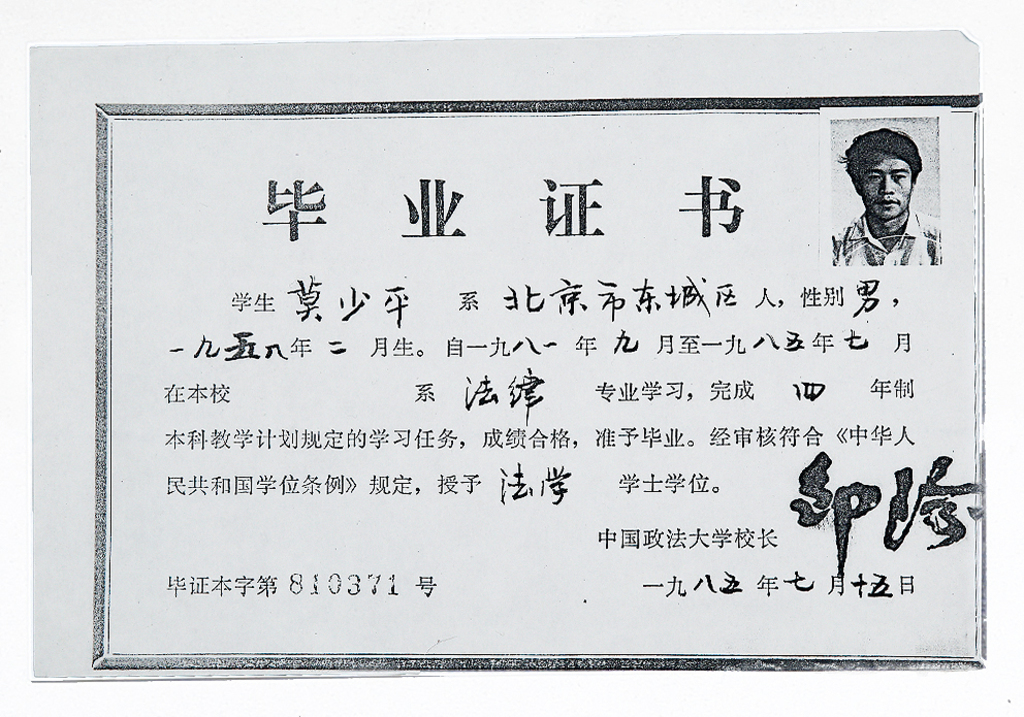 毕业证书
学生 莫少平 系 北京市东城区 人，性别 男，
一九五八年 二 月生。自一九八一 年 九 月至一九八五年 七 月
在本校 系 法律 专业学习，完成 四 年制
本科教学计划规定的学习任务，成绩合格，准予毕业。经审核符合《中华人
民共和国学位条例》规定，授予 法学 学士学位。
中国政法大学校长
毕证本字第 810371 号 一九八五 年 七 月十五日